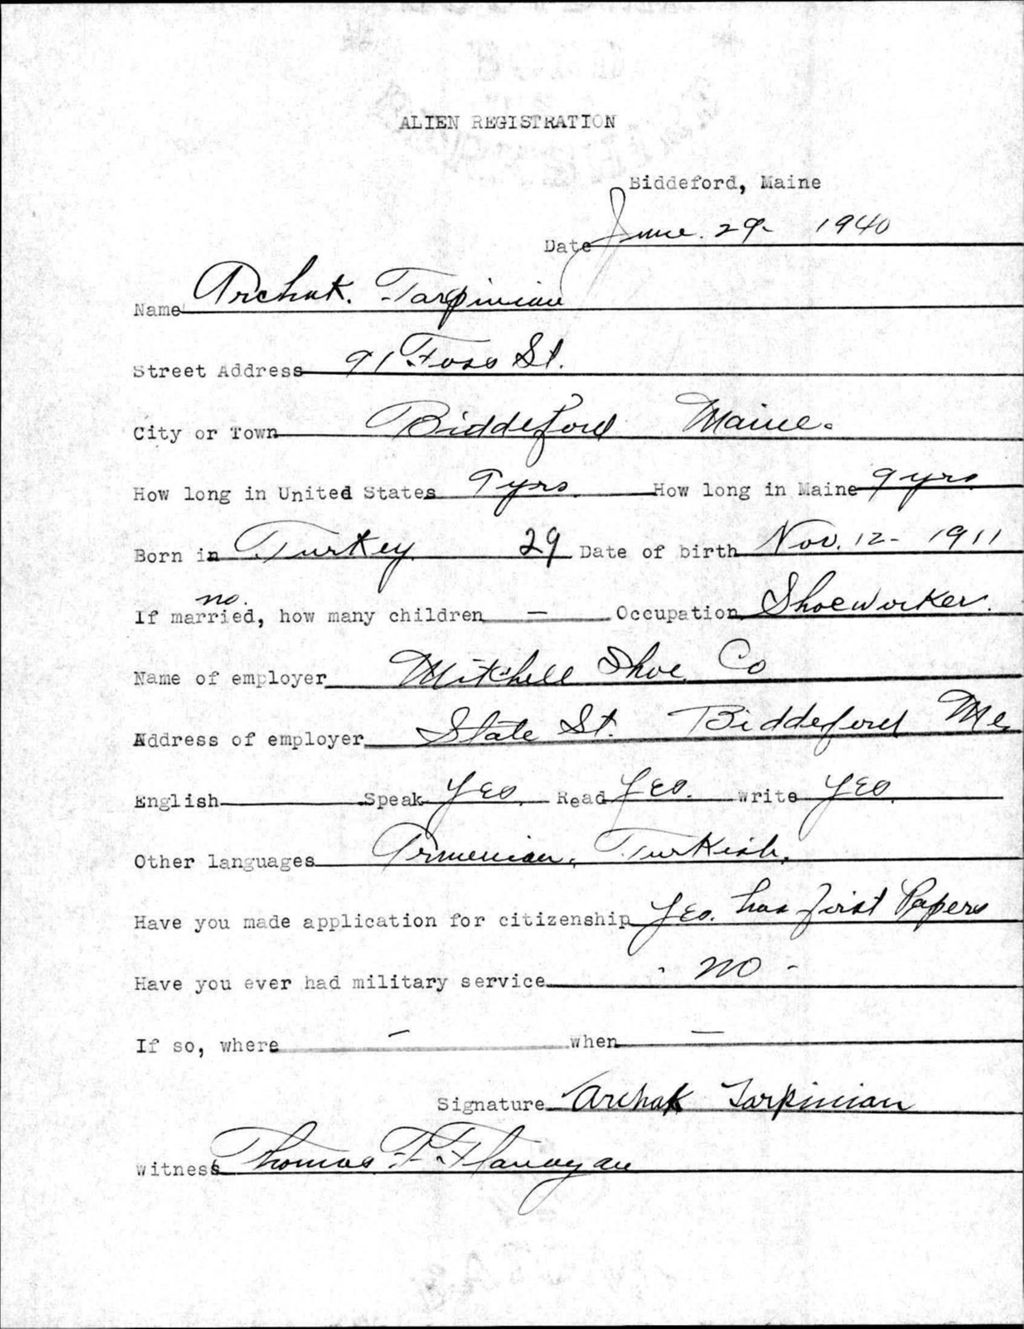 ALIEN REGISTRATION
Biddeford, Maine
Date June. 29- 1940
Name Archak. Tarpinian
Street Address 91 Foss St.
City or Town Biddeford Maine.
How long in United States 9 yrs. How long in Maine 9 yrs.
Born in Turkey 29 Date of birth Nov. 12- 1911
no.
If married, how many children — Occupation Shoeworker.
Name of employer Mitchell Shoe Co
Address of employer State St. Biddeford Me.
English Speak Yes. Read Yes. Write Yes.
Other languages Armenian, Turkish.
Have you made application for citizenship Yes. has first Papers
Have you ever had military service - no -
If so, where — when —
Signature Archak Tarpinian
Witness Thomas F. Flanagan